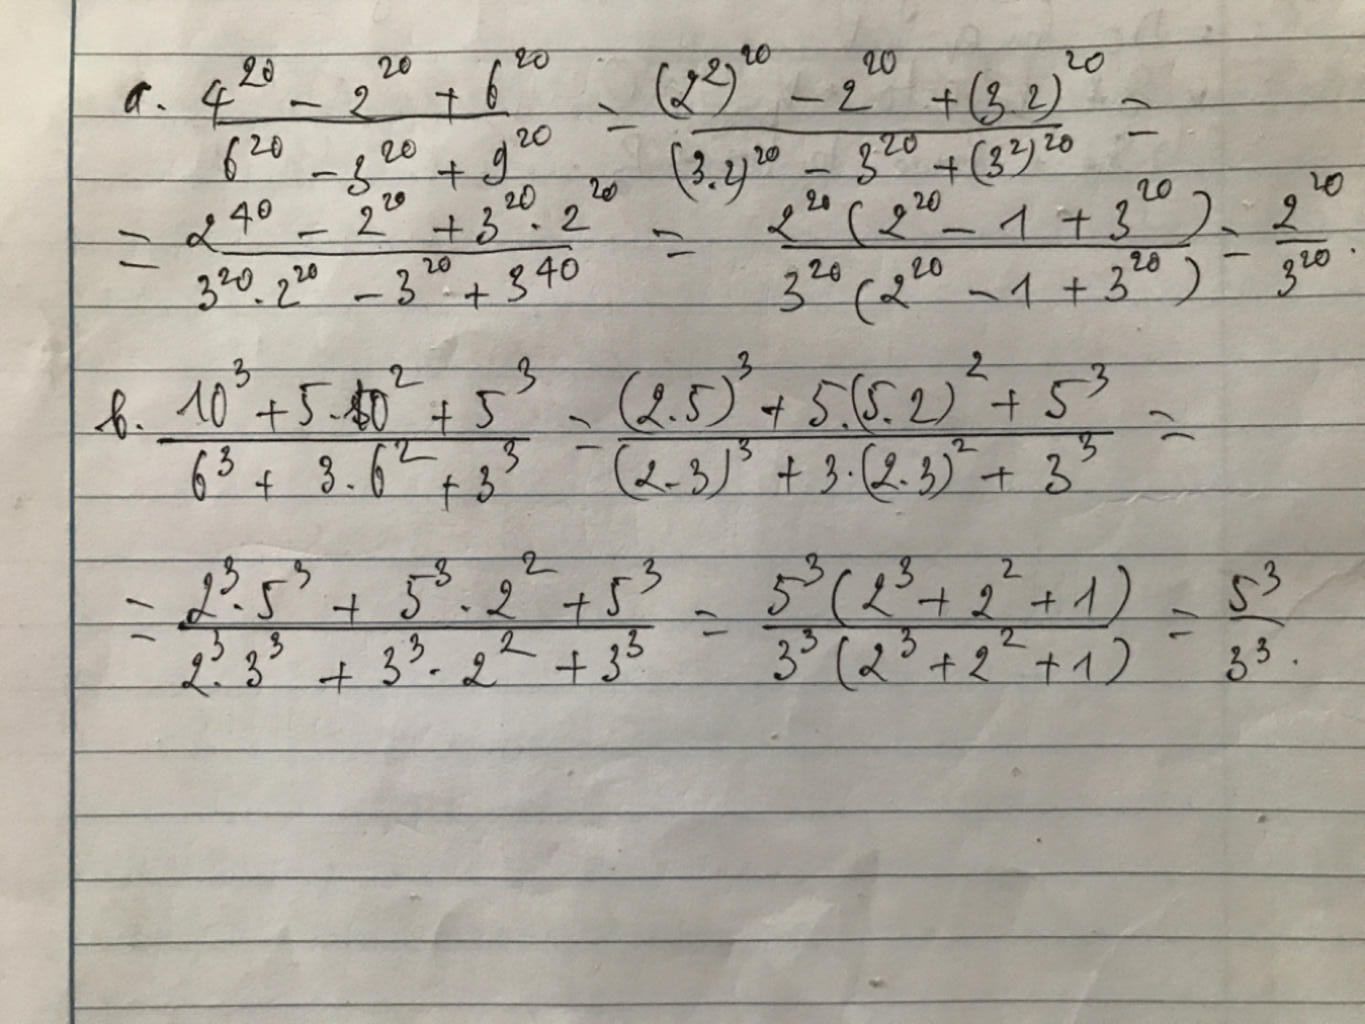 a. \frac{4^{20} - 2^{20} + 6^{20}}{6^{20} - 3^{20} + 9^{20}} = \frac{(2^2)^{20} - 2^{20} + (3.2)^{20}}{(3.2)^{20} - 3^{20} + (3^2)^{20}} =
= \frac{2^{40} - 2^{20} + 3^{20} . 2^{20}}{3^{20} . 2^{20} - 3^{20} + 3^{40}} = \frac{2^{20} (2^{20} - 1 + 3^{20})}{3^{20} (2^{20} - 1 + 3^{20})} = \frac{2^{20}}{3^{20}} .
b. \frac{10^3 + 5 . 10^2 + 5^3}{6^3 + 3 . 6^2 + 3^3} = \frac{(2.5)^3 + 5.(5.2)^2 + 5^3}{(2.3)^3 + 3.(2.3)^2 + 3^3} =
= \frac{2^3 . 5^3 + 5^3 . 2^2 + 5^3}{2^3 . 3^3 + 3^3 . 2^2 + 3^3} = \frac{5^3 (2^3 + 2^2 + 1)}{3^3 (2^3 + 2^2 + 1)} = \frac{5^3}{3^3} .